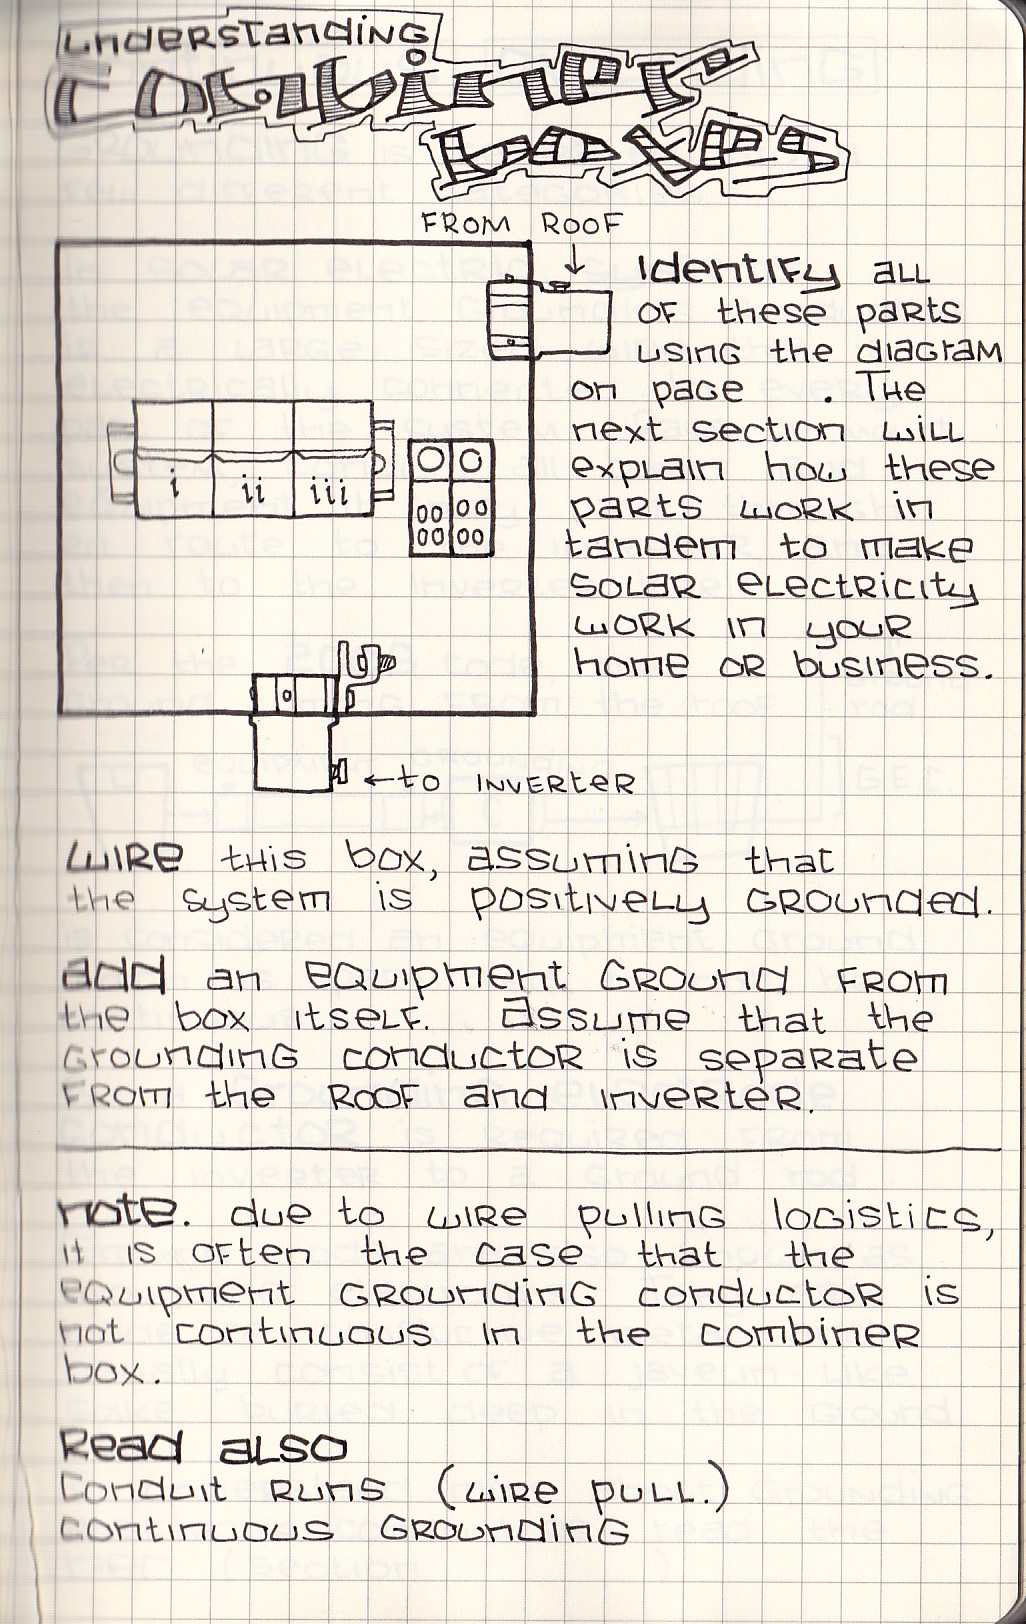 understanding
combiner
boxes
FROM ROOF
identify all
of these parts
using the diagram
on page . The
next section will
explain how these
parts work in
tandem to make
solar electricity
work in your
home or business.
i ii iii
← to inverter
wire this box, assuming that
the system is positively grounded.
add an equipment ground from
the box itself. Assume that the
grounding conductor is separate
from the roof and inverter.
note. due to wire pulling logistics,
it is often the case that the
equipment grounding conductor is
not continuous in the combiner
box.
Read also
Conduit runs (wire pull.)
continuous grounding